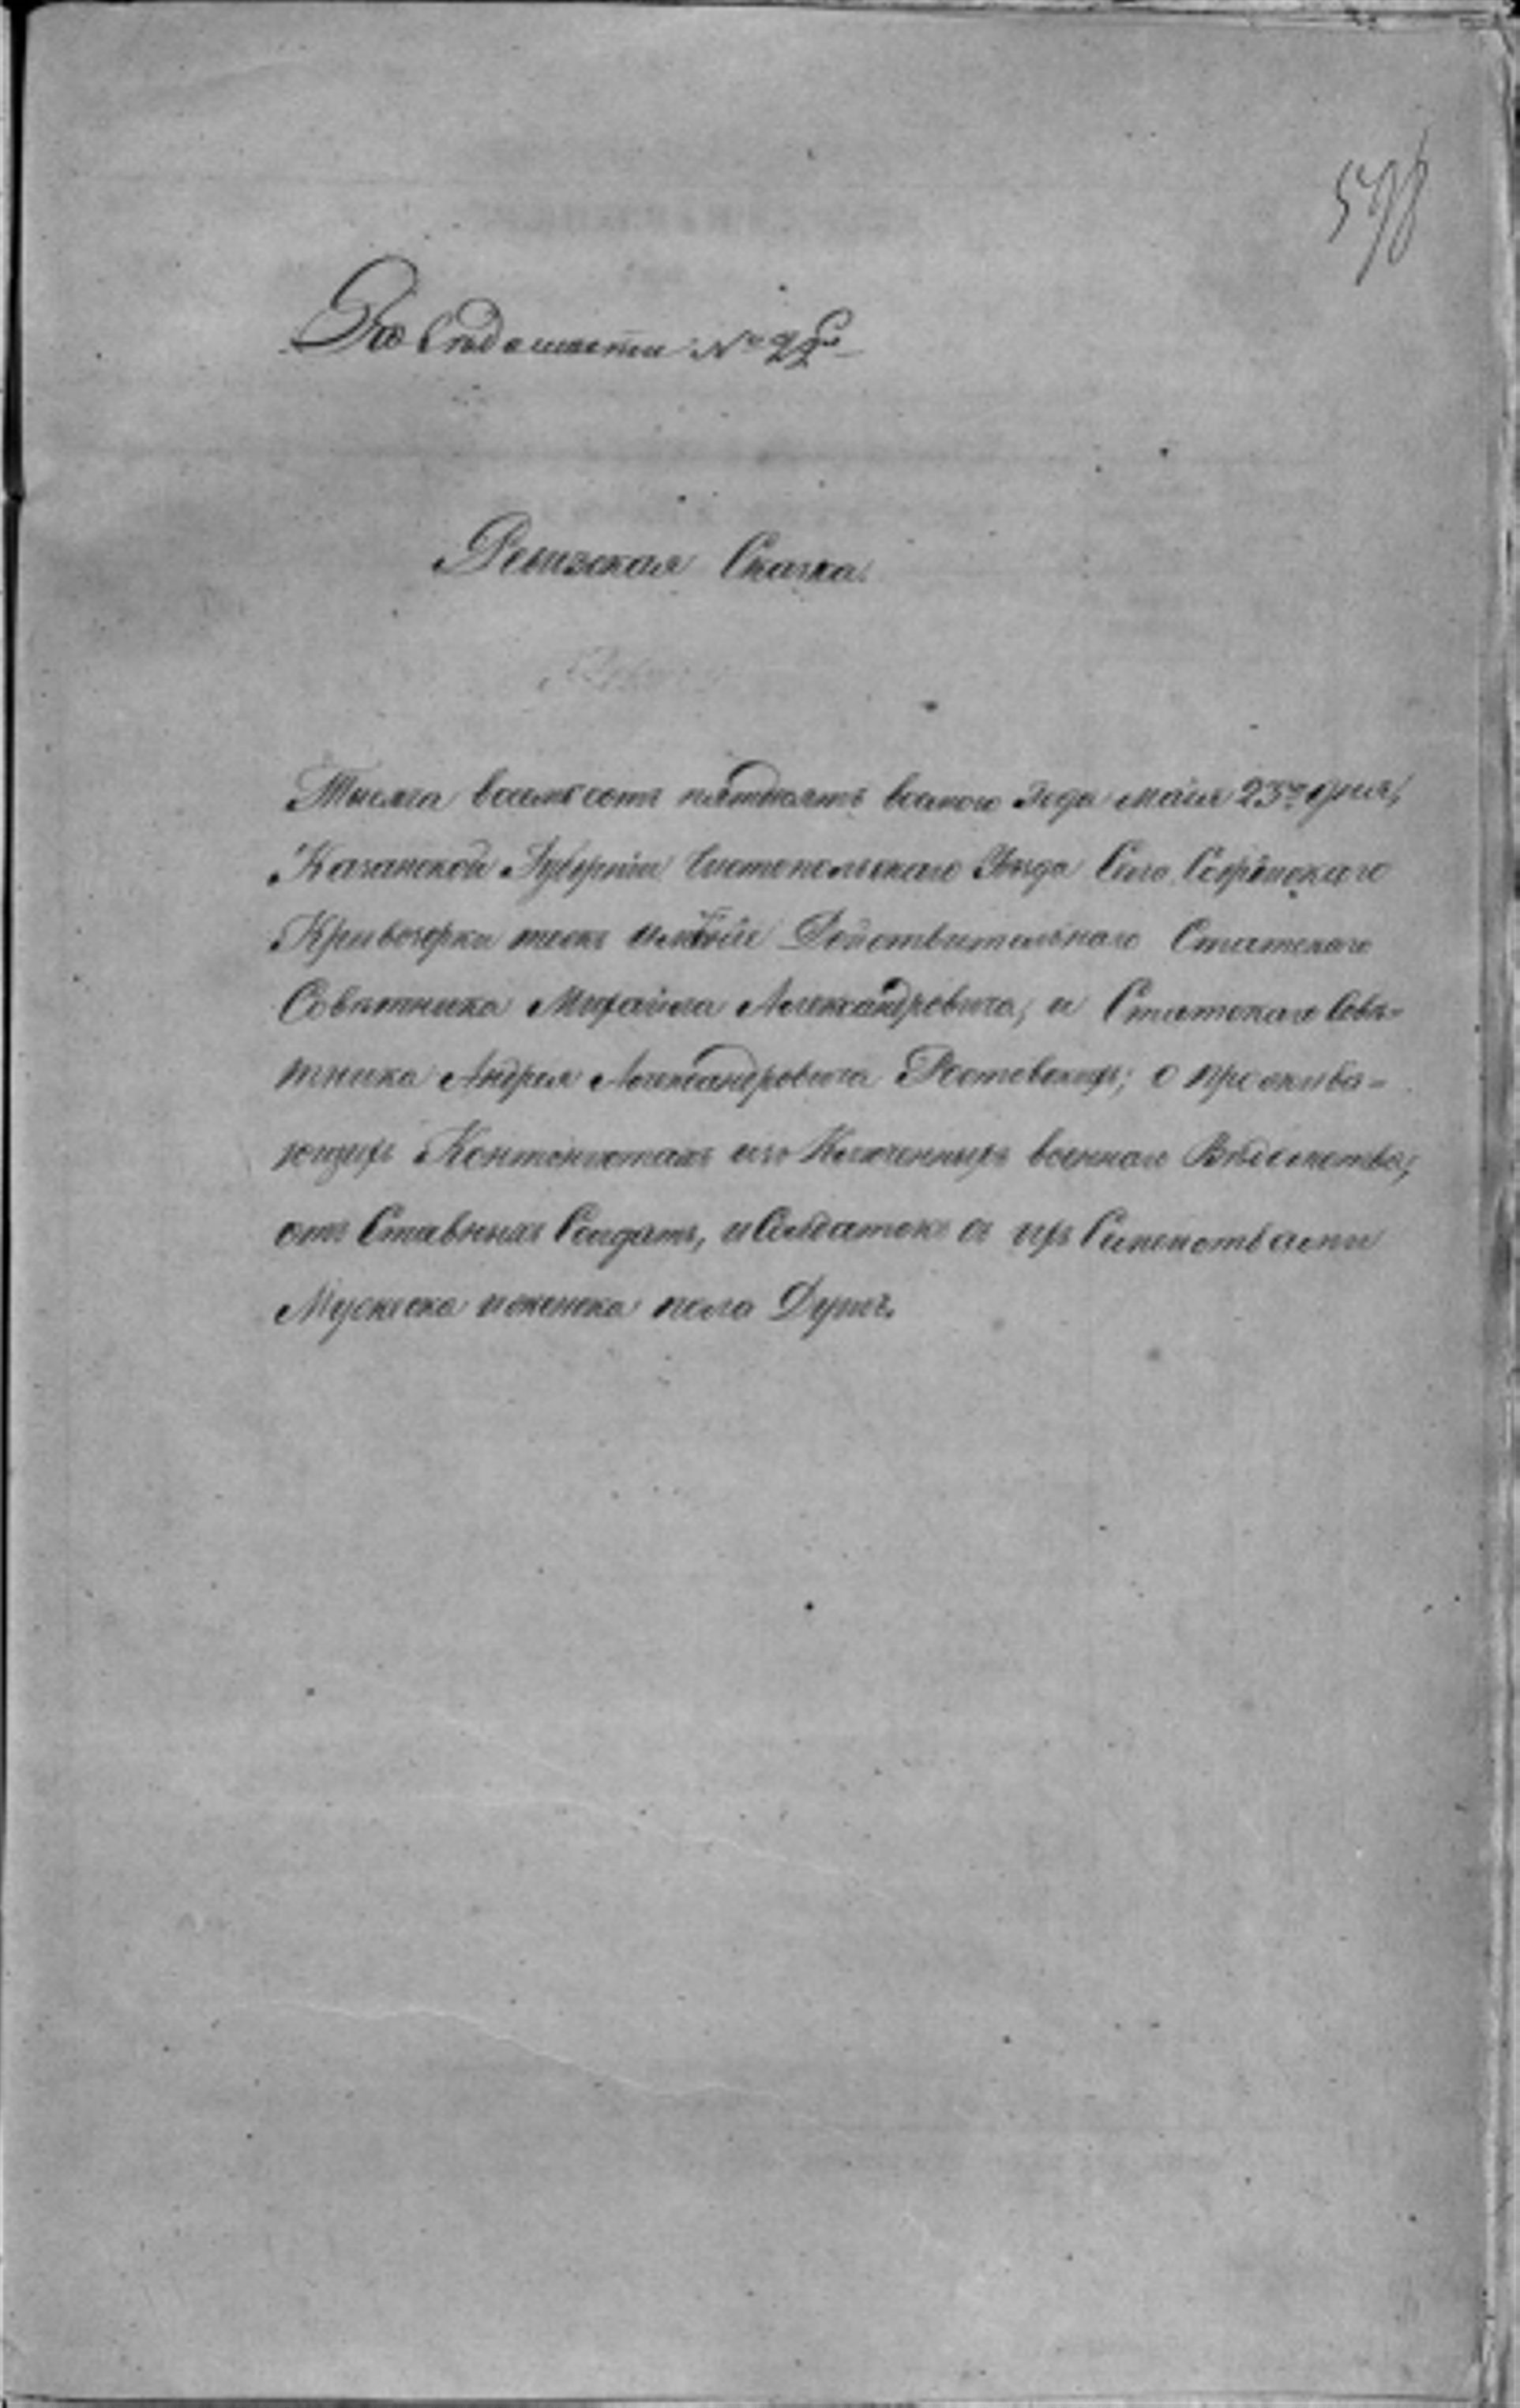 598
По Вѣдомости № 22й
Ревизская Сказка
Тысяча восемь сотъ пятьдесятъ восьмого года маія 23го дня,
Казанской Губерніи Чистопольскаго Уѣзда Села Софійскаго
Кривозерки тожъ имѣнія Действительнаго Статскаго
Советника Михайла Александровича, и Статскаго Совѣ=
тника Андрея Александровича Ростовскихъ; о прожива=
ющихъ Кантонистахъ изъ военнаго Вѣдомства,
отъ Ставныхъ Солдатъ, и Солдатокъ съ ихъ Семействами
Мужеска и женска пола Душъ.